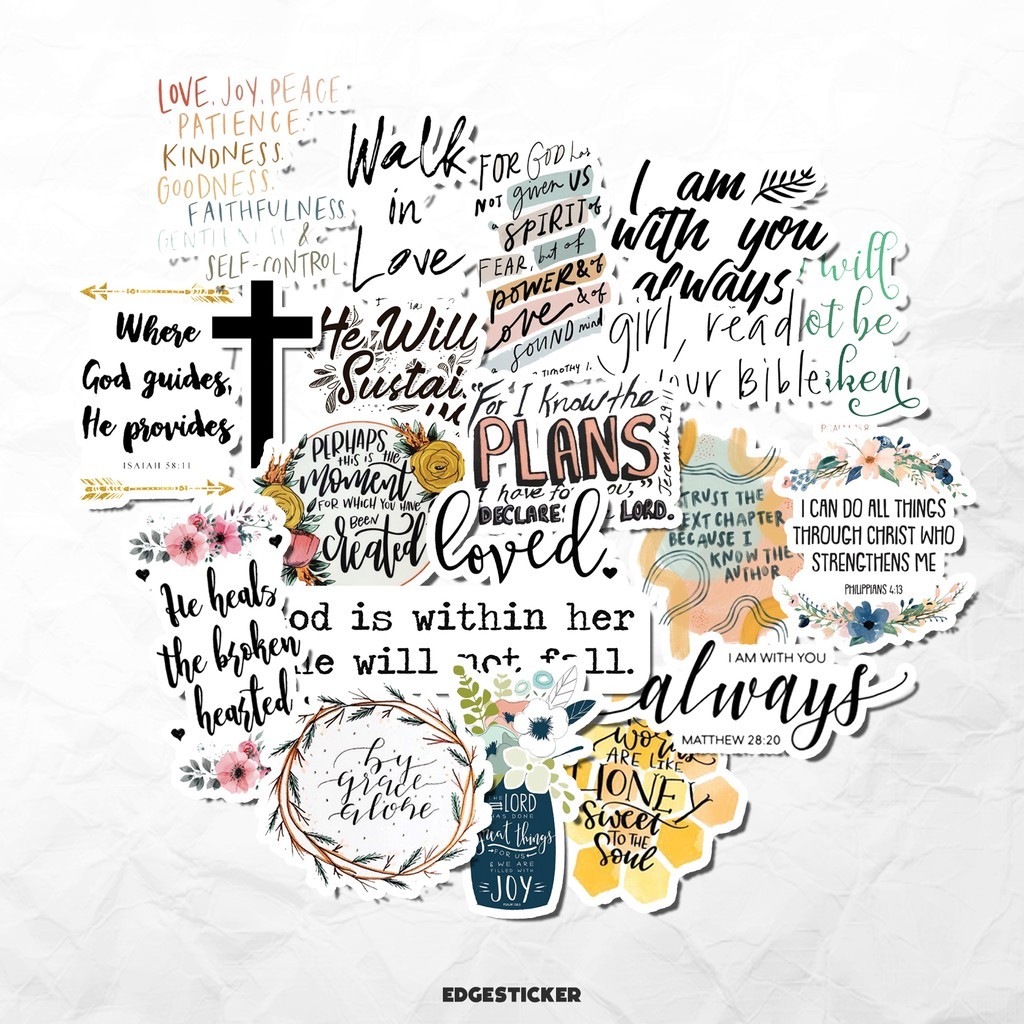 LOVE, JOY, PEACE
PATIENCE
KINDNESS.
GOODNESS.
FAITHFULNESS
GENTLENESS &
SELF-CONTROL
Walk
in
Love
FOR GOD has
NOT given US
a SPIRIT of
FEAR, but of
POWER & of
Love & of
a SOUND mind
TIMOTHY 1:
I am
with you
always
will
not be
girl, read
our Bible
Where
God guides,
He provides
ISAIAH 58:11
He Will
Sustai
"For I know the
PLANS
I have fo ou,"
DECLARE LORD.
Jeremiah 29:11
PERHAPS
THIS IS THE
Moment
FOR WHICH YOU HAVE
BEEN
Created
loved.
TRUST THE
EXT CHAPTER
BECAUSE I
KNOW THE
AUTHOR
I CAN DO ALL THINGS
THROUGH CHRIST WHO
STRENGTHENS ME
PHILIPPIANS 4:13
He heals
the broken
hearted
od is within her
he will not fall.
I AM WITH YOU
always
MATTHEW 28:20
by
grace
alone
THE LORD
HAS DONE
great things
FOR US
& WE ARE
FILLED WITH
JOY
words
ARE LIKE
HONEY
Sweet
TO THE
Soul
EDGESTICKER